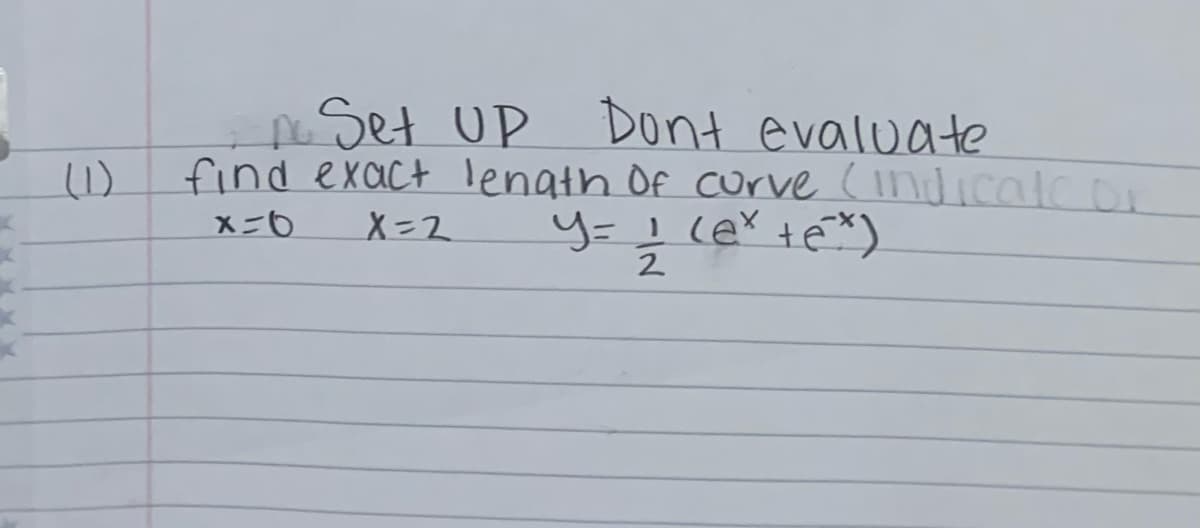 Set UP Dont evaluate
(1) find exact lenath of curve (indicatc or
x=0 x=2 y= 1/2 (eˣ +e⁻ˣ)